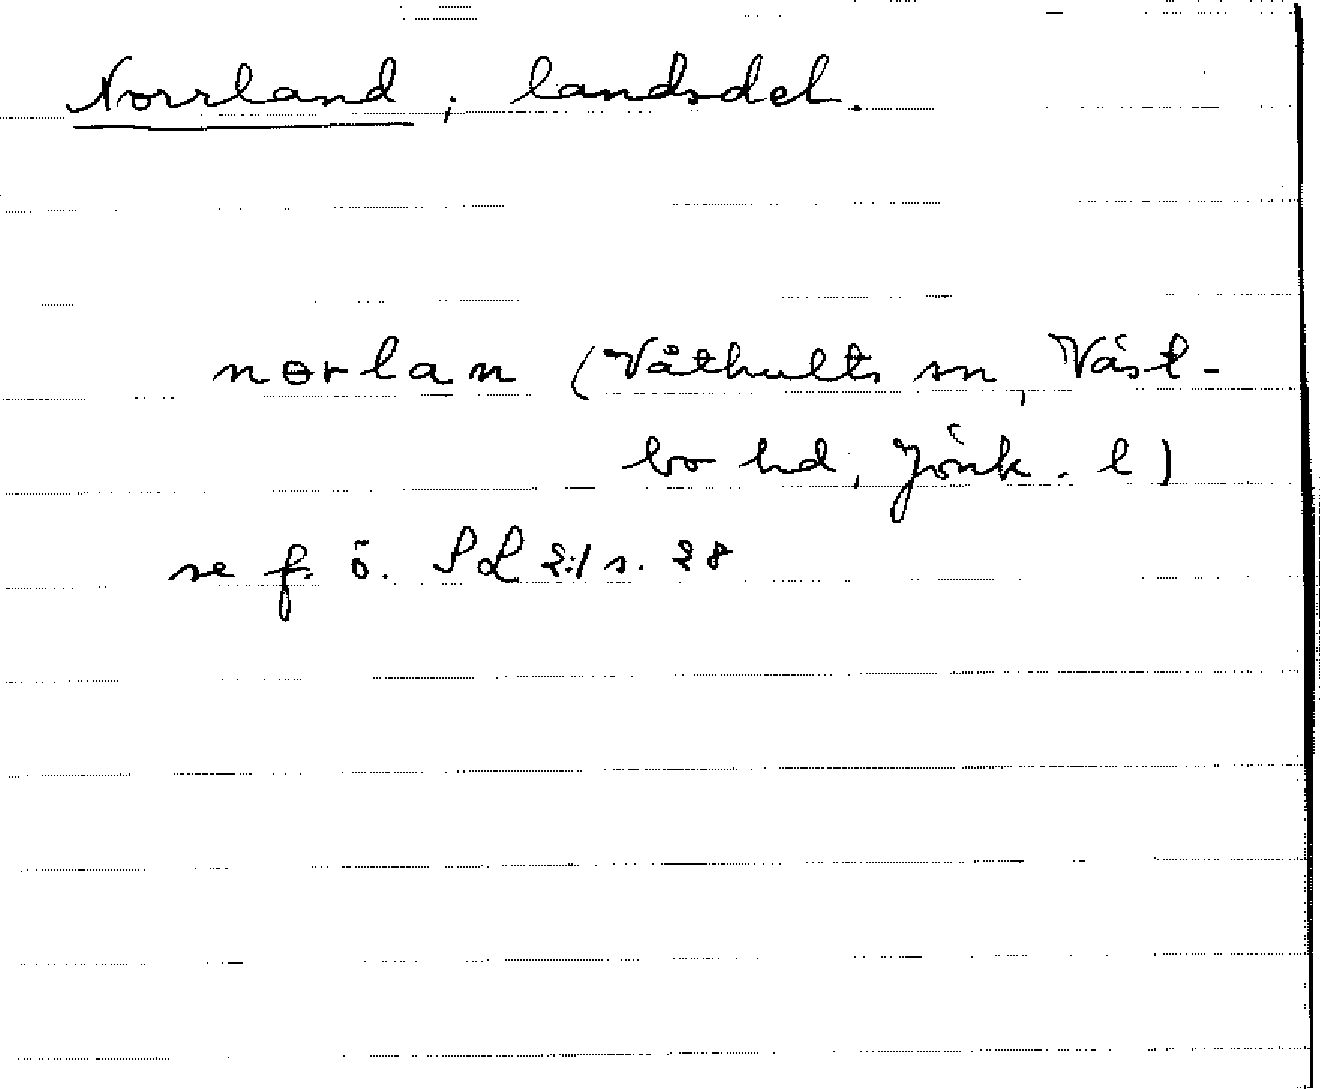 Norrland, landsdel.
nɵrlan (Våthults sn, Väst-
bo hd, Jönk. l)
se f. ö. SL 2:1 s. 28